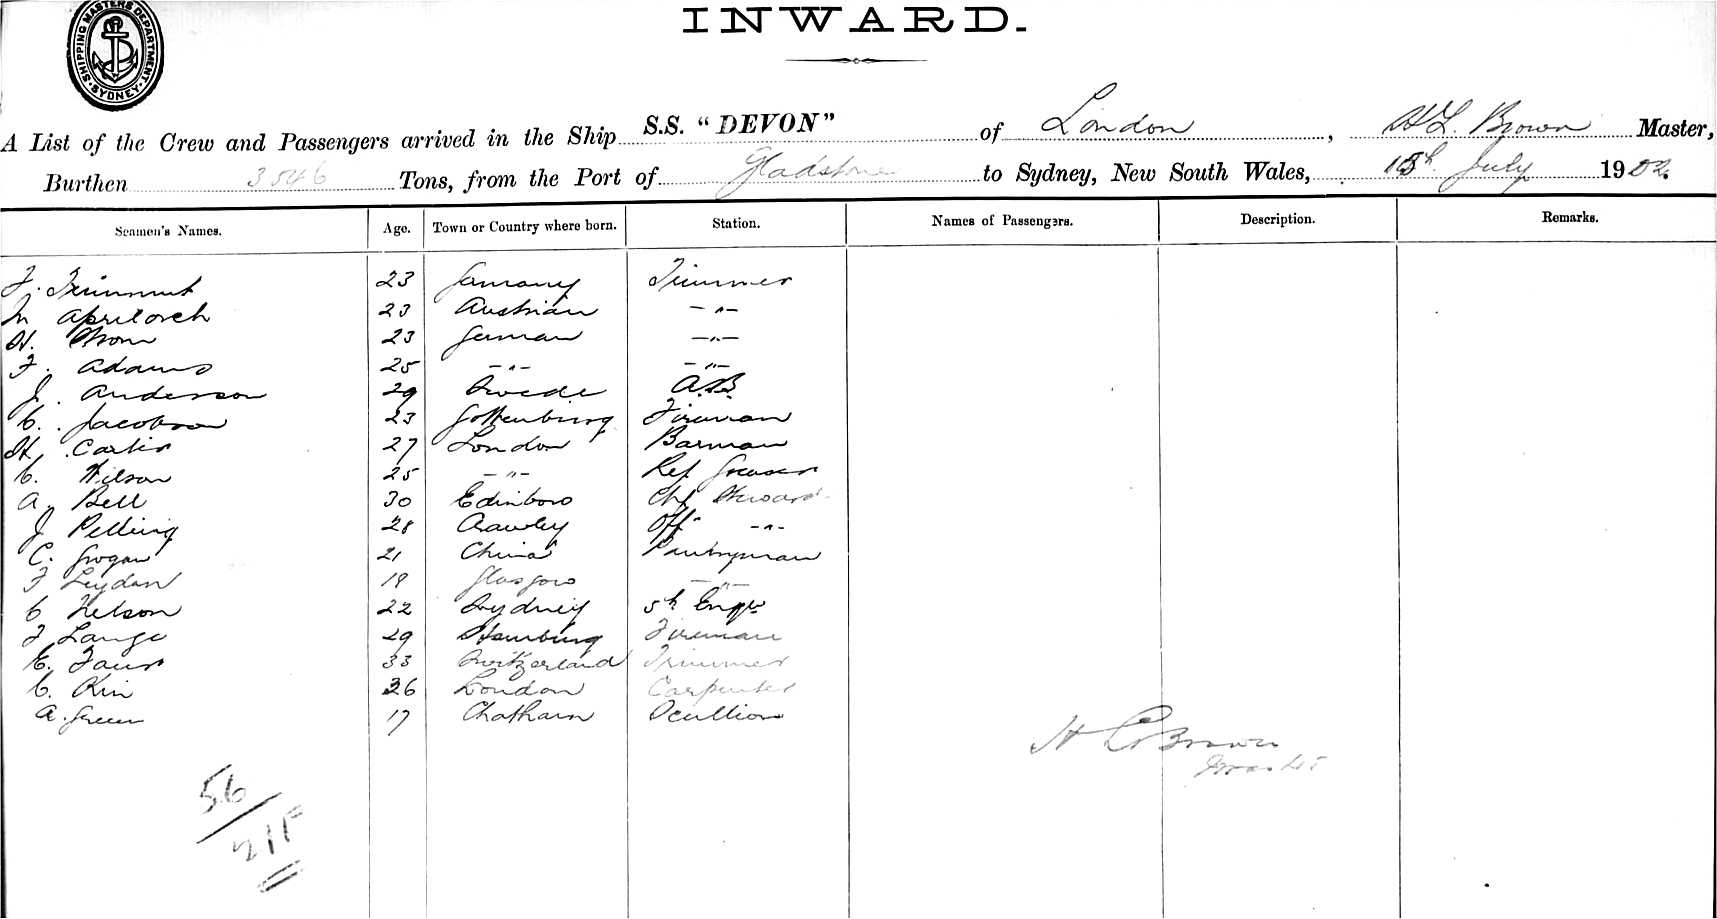 INWARD.
SHIPPING MASTERS DEPARTMENT SYDNEY
A List of the Crew and Passengers arrived in the Ship S.S. "DEVON" of London, H L. Brown Master,
Burthen 3546 Tons, from the Port of Gladstone to Sydney, New South Wales, July 1902.
Seamen's Names. Age. Town or Country where born. Station. Names of Passengers. Description. Remarks.
F. 23 Germany Trimmer
23 Austrian -"-
H. 23 German -"-
F. Adams 25 -"- -"-
J. Anderson 29 Swede A.B.
C. Jacobson 23 Gottenburg Fireman
H. Carter 27 London Barman
C. Wilson 25 -"- Ref Greaser
A. Bell 30 Edinboro Chf Steward
J Pelling 28 Crawley -"-
C. Grogan 21 China Pantryman
F Leydan 19 Glasgow -"-
C Nelson 22 Sydney 5th Engr
F Lange 29 Hamburg Fireman
E. 33 Switzerland Trimmer
C. Kin 36 London Carpenter
A. Green 17 Chatham Scullion
H L Brown
Master
56